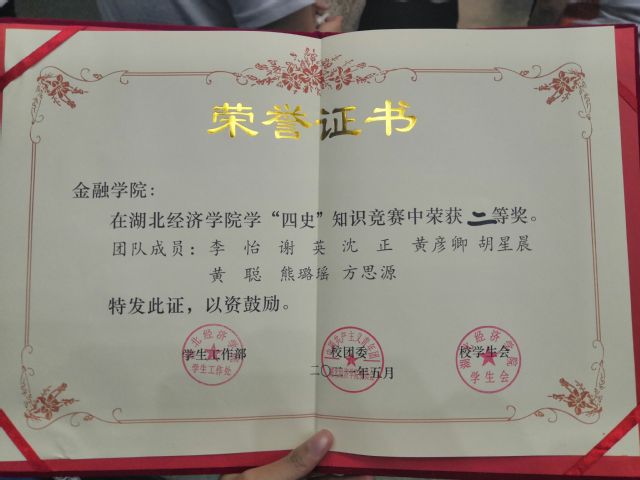 荣誉证书
金融学院：
在湖北经济学院学“四史”知识竞赛中荣获 二等奖。
团队成员：李 怡 谢 英 沈 正 黄彦卿 胡星晨
黄 聪 熊璐瑶 方思源
特发此证，以资鼓励。
学生工作部 校团委 校学生会
湖北经济学院
学生工作处
湖北经济学院
学生会
年五月